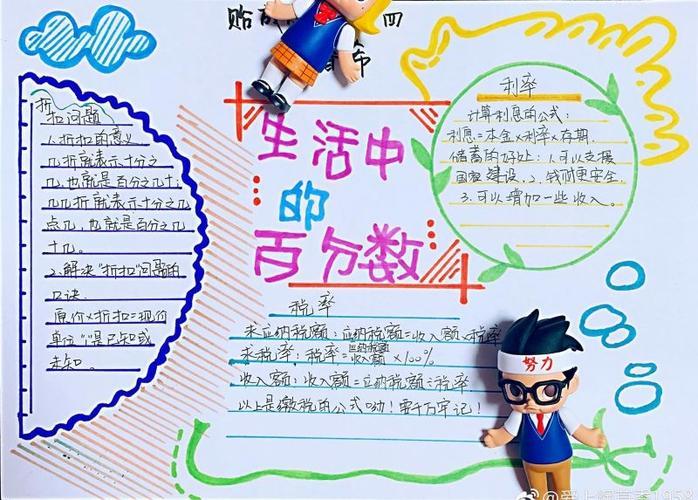 四
生活中
的
百分数
折
扣问题
1.折扣的意义
几折就表示十分之
几,也就是百分之几十;
几几折就表示十分之几
点几,也就是百分之几
十几。
2.解决"折扣"问题的
口诀:
原价×折扣=现价
单位"1"是已知或
未知。
利率
计算利息的公式:
利息=本金×利率×存期.
储蓄的好处:1.可以支援
国家建设、2、钱财更安全
3.可以增加一些收入。
税率
求应纳税额:应纳税额=收入额×税率
求税率:税率=应纳税额/收入额×100%
收入额:收入额=应纳税额÷税率
以上是缴税的公式呦!要千万牢记!
努力